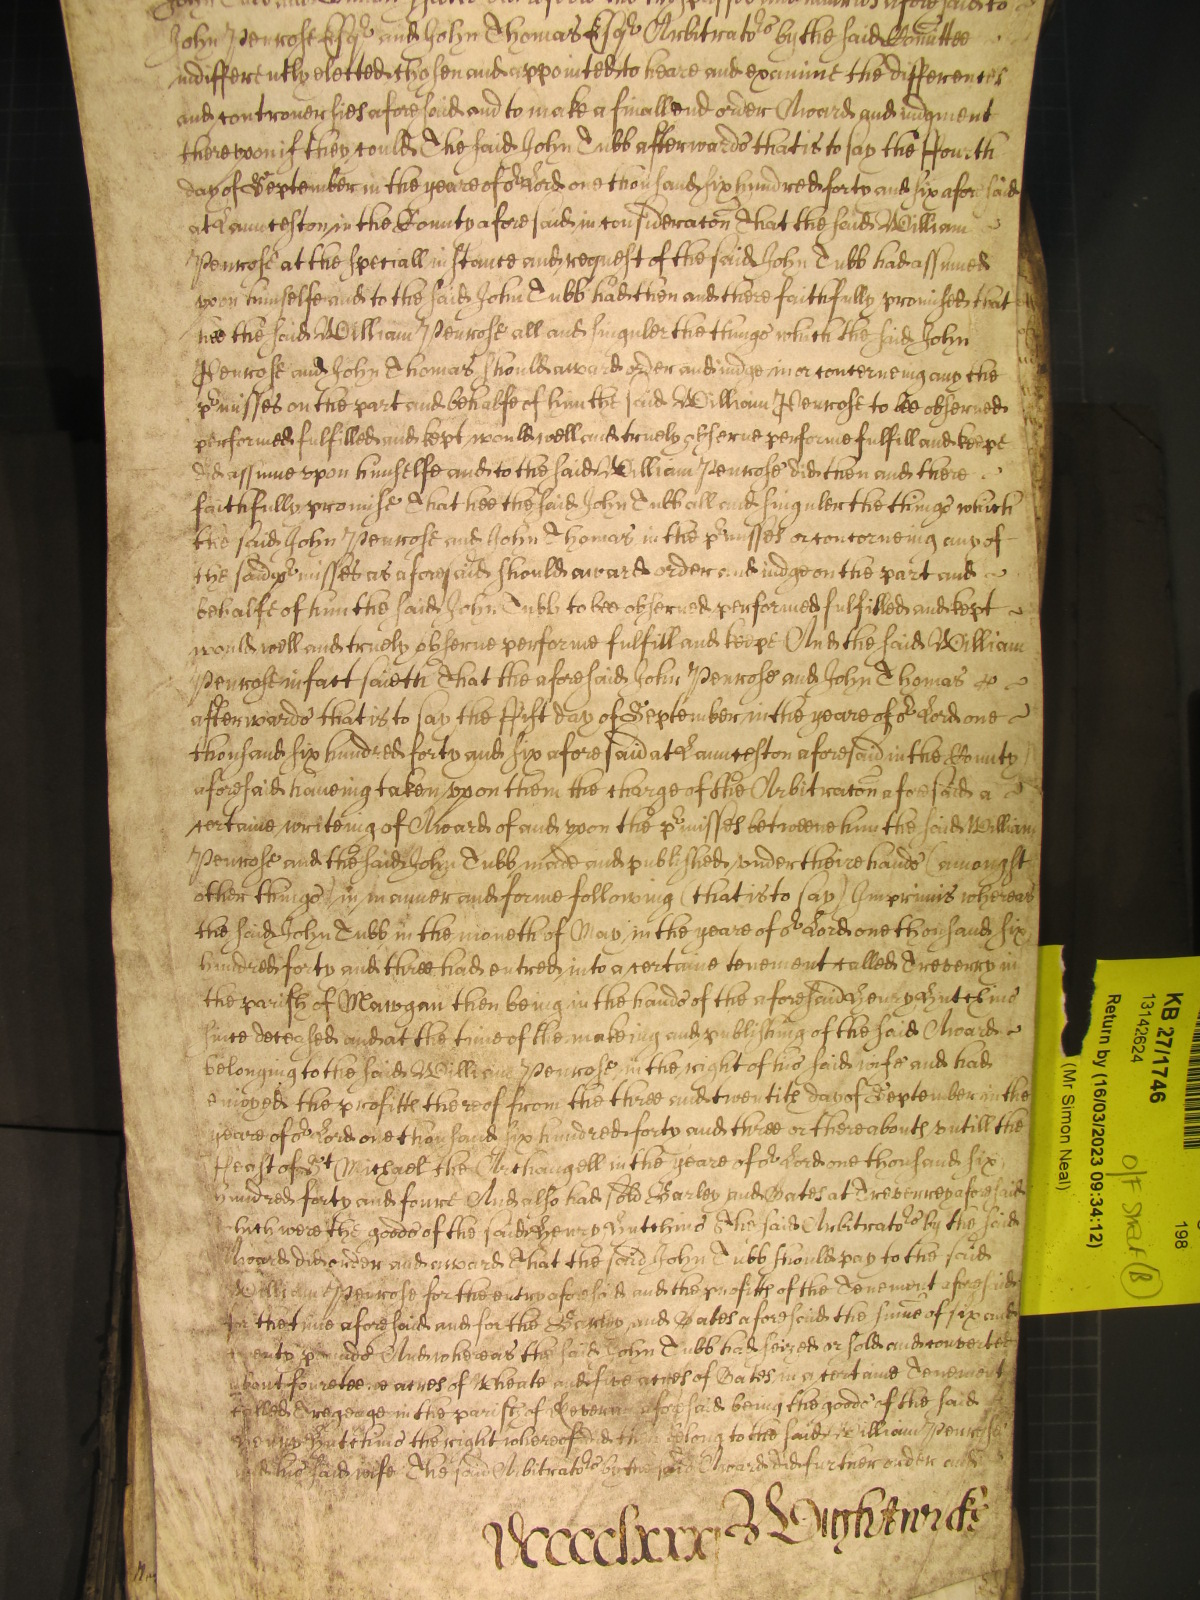 John Penrose Esqr and John Thomas Esqr Arbitrators by the said Comittee
indifferently elected chosen and appointed to heare and examine the differences
and controversies aforesaid and to make a finall end order Award and iudgment
therevpon if they could The said John Tubb afterwards that is to say the ffourth
day of September in the yeare of or Lord one thousand six hundred forty and six aforesaid
at Launceston in the County aforesaid in consideracon That the said William
Penrose at the speciall instance and request of the said John Tubb had assumed
vpon himselfe and to the said John Tubb had then and there faithfully promised that
hee the said William Penrose all and singuler the things which the said John
Penrose and John Thomas should award order and iudge in or concerneing any the
prmisses on the part and behalfe of him the said William Penrose to bee observed
performed fulfilled and kept would well and truely observe performe fulfill and keepe
did assume vpon himselfe and to the said William Penrose did then and there
faithfully promise That hee the said John Tubb all and singuler the things which
the said John Penrose and John Thomas in the prmisses or concerneing any of
the said prmisses as aforesaid should award order and iudge on the part and
behalfe of him the said John Tubb to bee observed performed fulfilled and kept
would well and truely observe performe fulfill and keepe And the said William
Penrose in fact saieth That the aforesaid John Penrose and John Thomas
afterwards that is to say the ffift day of September in the yeare of or Lord one
thousand six hundred forty and six aforesaid at Launceston aforesaid in the County
aforesaid haueing taken vpon them the charge of the Arbitracon aforesaid a
certaine writeing of Award of and vpon the prmisses betweene him the said William
Penrose and the said John Tubb made and published vnder theire hands (amongst
other things) in manner and forme following (that is to say) Imprimis whereas
the said John Tubb in the moneth of May in the yeare of or Lord one thousand six
hundred forty and three had entred into a certaine tenement called Treverry in
the parish of Mawgan then being in the hands of the aforesaid Henry Hutchins
since deceased and at the time of the makeing and publishing of the said Award
belonging to the said William Penrose in the right of his said wife and had
enioyed the profitts thereof from the three and twentith day of September in the
yeare of or Lord one thousand six hundred forty and three or thereabouts vntill the
ffeast of St Michael the Archangell in the yeare of or Lord one thousand six
hundred forty and foure And also had sold Barley and Oates at Treverrey aforesaid
which were the goods of the said Henry Hutchins The said Arbitrators by the said
Award did order and award That the said John Tubb should pay to the said
William Penrose for the entry aforesaid and the profitts of the Tenement aforesaid
for the time aforesaid and for the Barley and Oates aforesaid the sume of six and
twenty pounds And whereas the said John Tubb had seized or sold and converted
about foureteene acres of Wheate and five acres of Oates in a certaine Tenement
called in the parish of aforesaid being the goods of the said
Henry Hutchins the right whereof did then belong to the said William Penrose
and his said wife The said Arbitrators by the said Award did further order and
Wightwicke
KB 27/1746
13142624
Return by (16/03/2023 09:34:12)
(Mr Simon Neal)
198